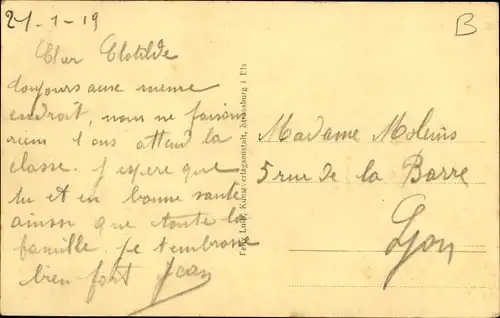 27-1-19
B
Cher Clotilde
toujours aux meme
endroit, nous ne faisons
rien l ons attend la
classe. J espere que
tu et en bonne santé
ainssi que toute la
famille. Je t'embrasse
bien fort Jean
Felix Luib, Kunstverlagsanstalt, Strassburg i Els
Madame Moleins
5 rue de la Barre
Lyon